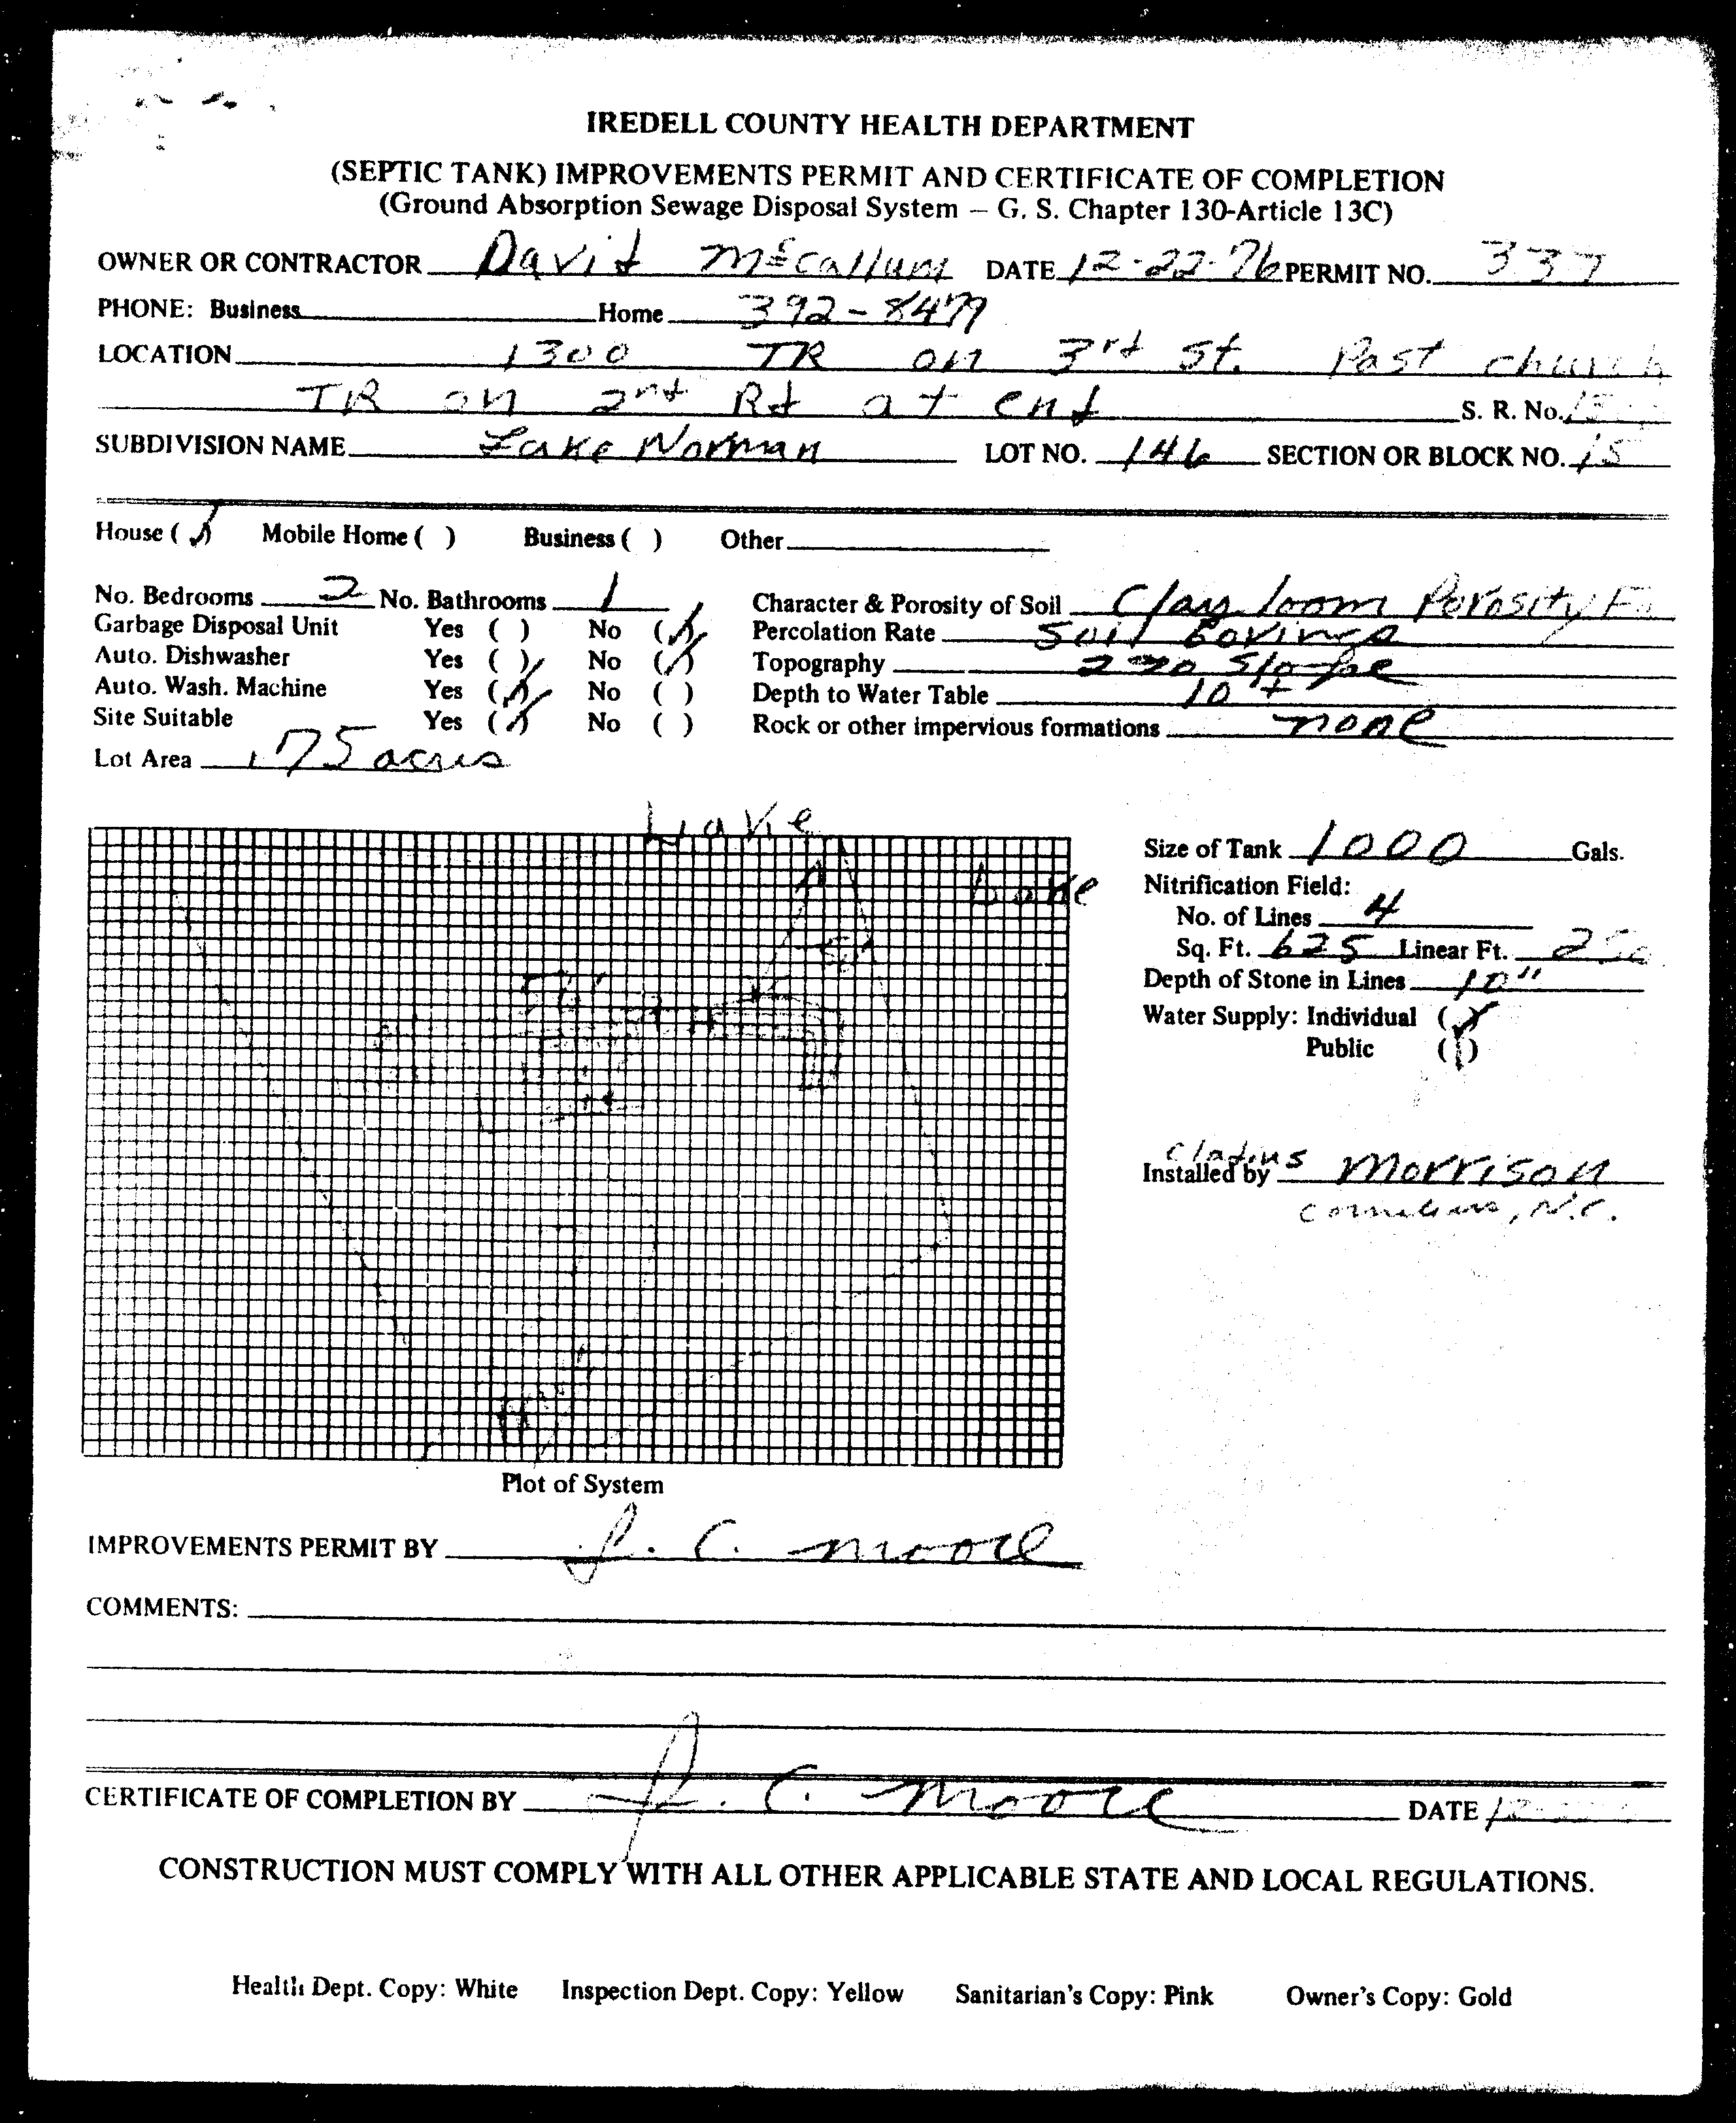 IREDELL COUNTY HEALTH DEPARTMENT
(SEPTIC TANK) IMPROVEMENTS PERMIT AND CERTIFICATE OF COMPLETION
(Ground Absorption Sewage Disposal System – G. S. Chapter 130-Article 13C)
OWNER OR CONTRACTOR David McCallum DATE 12-22-76 PERMIT NO. 337
PHONE: Business Home 392-8479
LOCATION 1300 TR on 3rd St. Past church
TR on 2nd Rd at end S. R. No.
SUBDIVISION NAME Lake Norman LOT NO. 146 SECTION OR BLOCK NO. 15
House (✓) Mobile Home ( ) Business ( ) Other
No. Bedrooms 2 No. Bathrooms 1 Character & Porosity of Soil Clay loom Porosity
Garbage Disposal Unit Yes ( ) No (✓) Percolation Rate Soil Borings
Auto. Dishwasher Yes ( ) No (✓) Topography 2% Slope
Auto. Wash. Machine Yes (✓) No ( ) Depth to Water Table 10 +
Site Suitable Yes (✓) No ( ) Rock or other impervious formations none
Lot Area .75 acres
Lake
Lake
Size of Tank 1000 Gals.
Nitrification Field:
No. of Lines 4
Sq. Ft. 625 Linear Ft.
Depth of Stone in Lines 10"
Water Supply: Individual (✓)
Public ( )
Installed by Morrison
Cornelius, N.C.
Plot of System
IMPROVEMENTS PERMIT BY J. C. Moore
COMMENTS:
CERTIFICATE OF COMPLETION BY J. C. Moore DATE 12
CONSTRUCTION MUST COMPLY WITH ALL OTHER APPLICABLE STATE AND LOCAL REGULATIONS.
Health Dept. Copy: White Inspection Dept. Copy: Yellow Sanitarian's Copy: Pink Owner's Copy: Gold